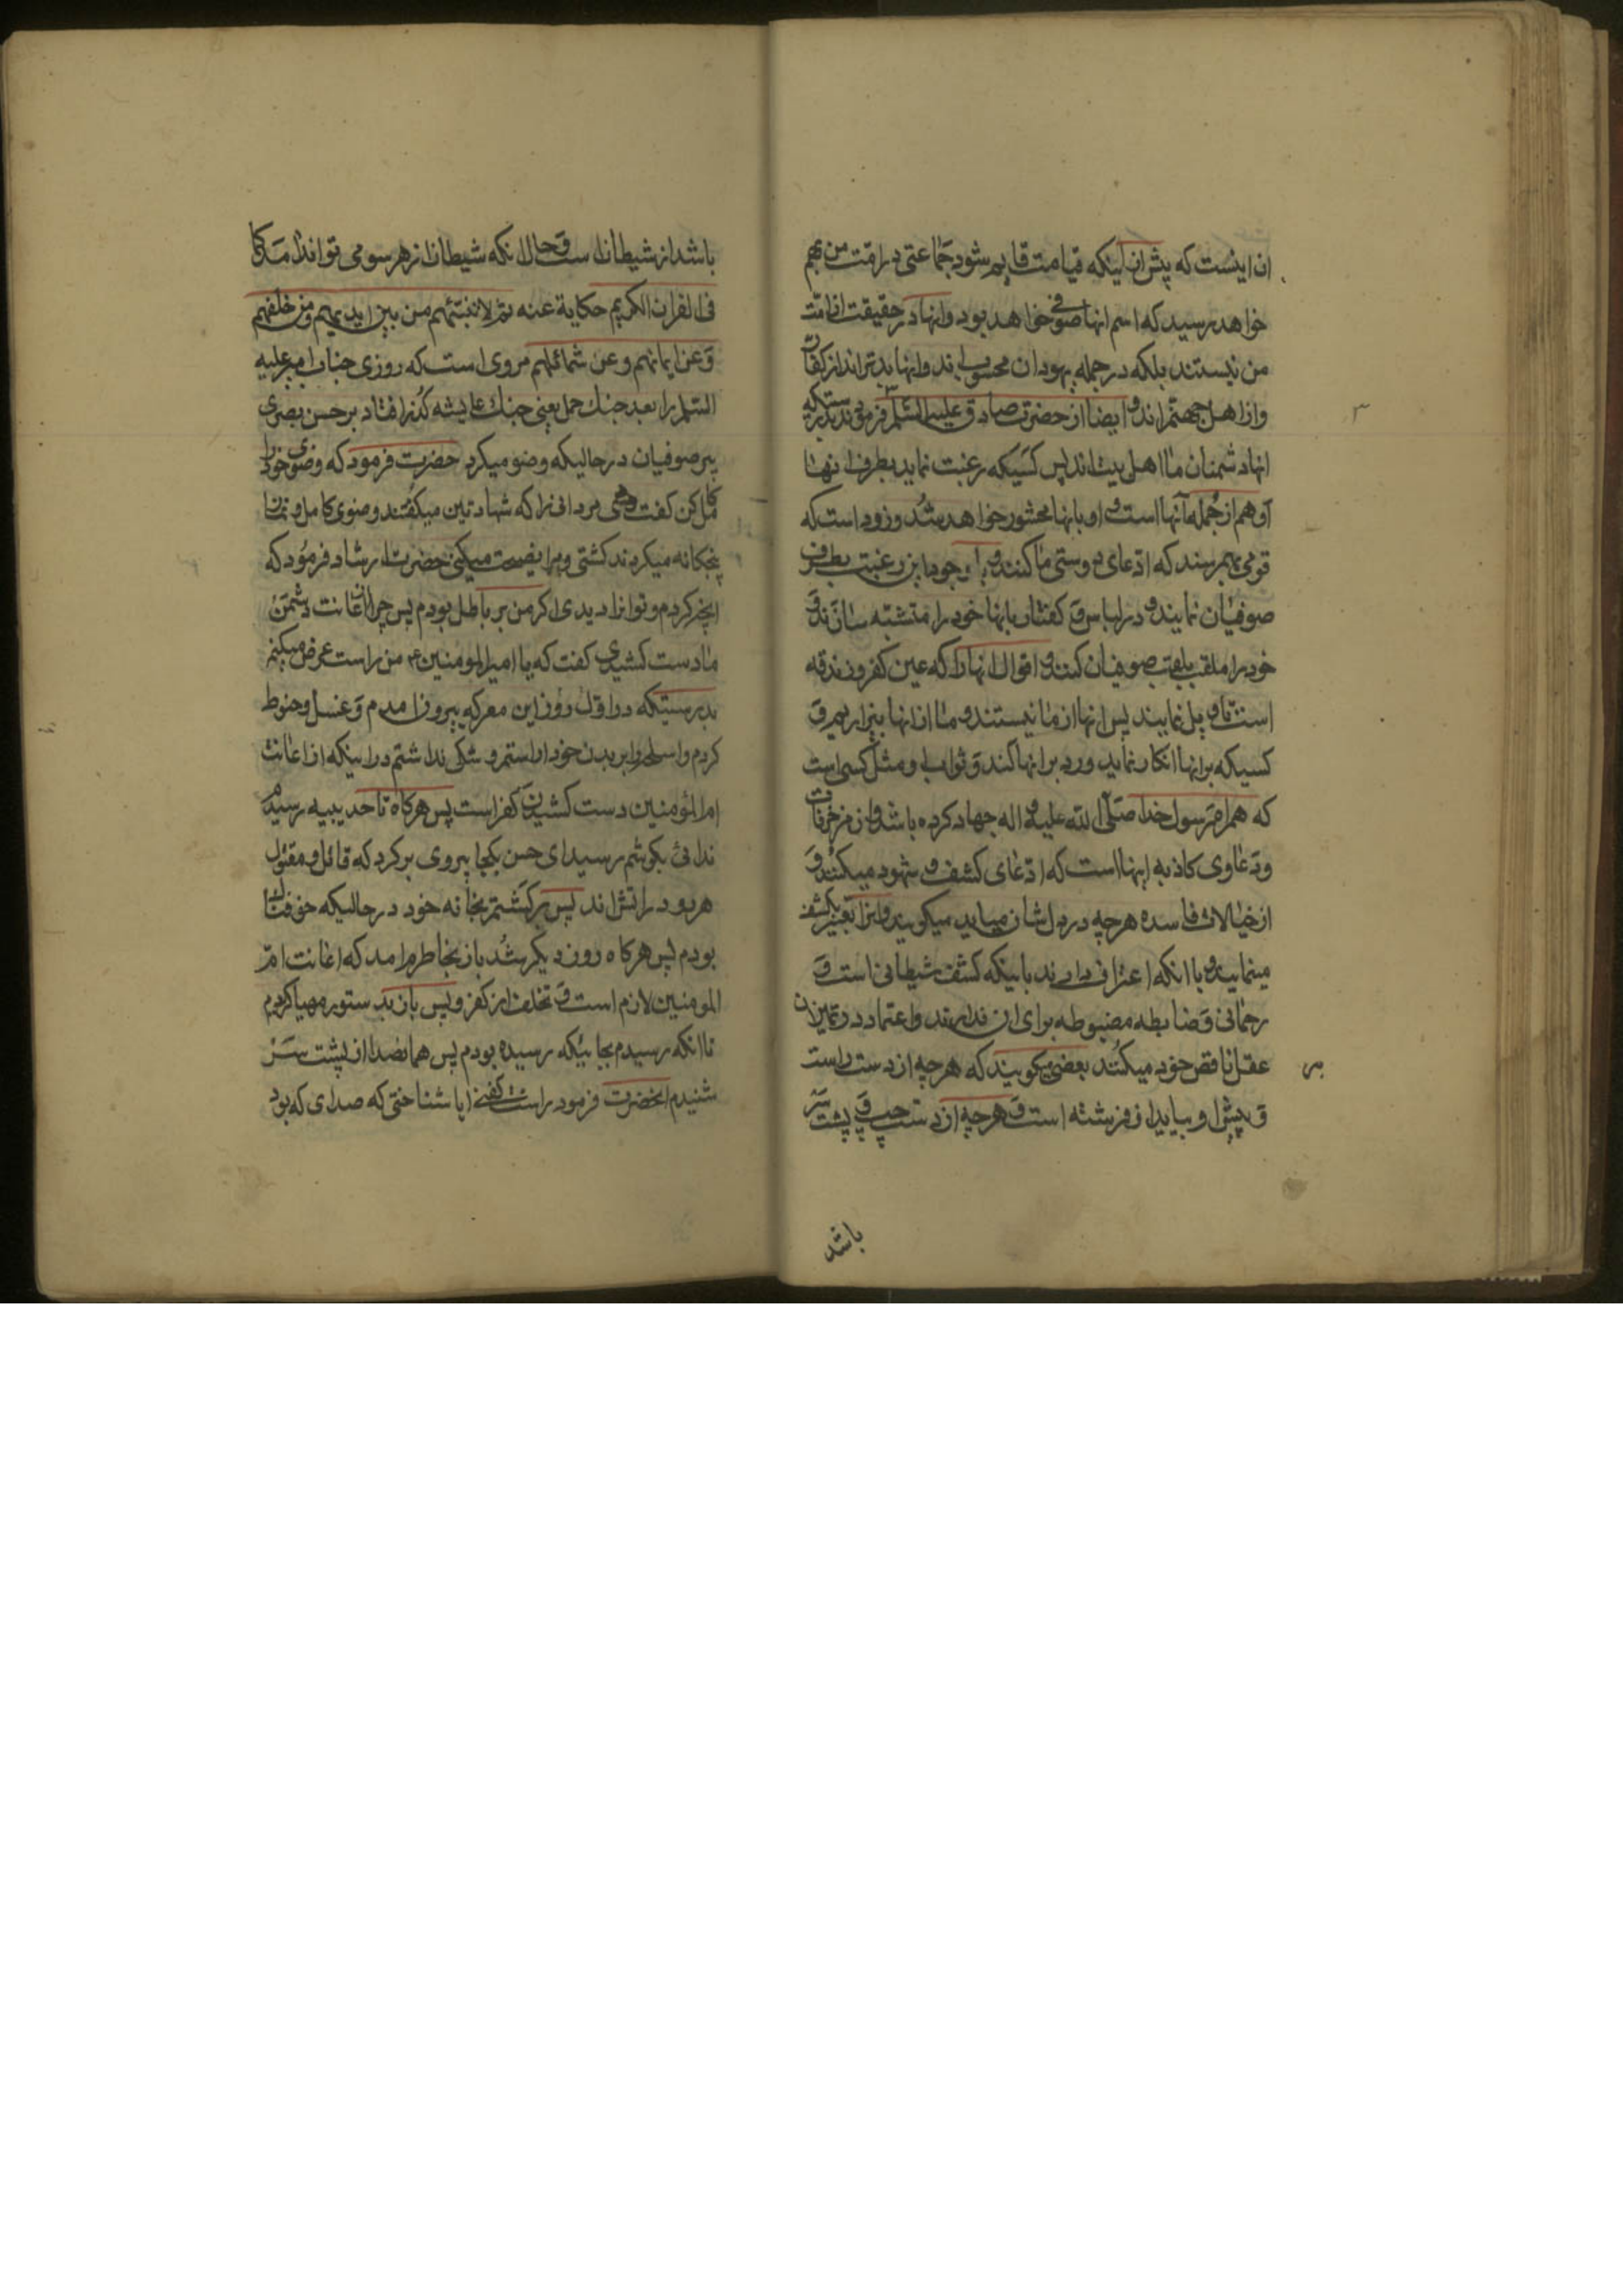 ان اینست که پیش از اینکه قیامت قایم شود جماعتی در امت من بهم
خواهد رسید که اسم انها صوفی خواهد بود و انها در حقیقت از امت
من نیستند بلکه در جمله یهودان محسوب اند و انها بدتراند از کفار
و از اهل جهنم اند و ایضا از حضرت صادق علیه السلام فرمودند بدرستیکه
انها دشمنان ما اهل بیت اند پس کسیکه رغبت نماید بطرف انها
او هم از جمله آنها است و او بانها محشور خواهد شد و زود است که
قومی بهم رسند که ادعای دوستی ما کنند و با وجود این رغبت بطرف
صوفیان نمایند و در لباس و گفتار بانها خود را متشبه سازند و
خود را ملقب بلقب صوفیان کنند و اقوال انها را که عین کفر و زندقه
است تاویل نمایند پس انها از ما نیستند و ما از انها بیزاریم و
کسیکه بر انها انکار نماید و رد بر انها کند و ثواب او مثل کسی است
که همراه رسول خدا صلی الله علیه و اله جهاد کرده باشد و از مزخرفات
و دعاوی کاذبه اینها است که ادعای کشف و شهود میکنند و
از خیالات فاسده هرچه در دل شان میاید میگویند و انرا تعبیر بکشف
مینمایند و با انکه اعتراف دارند باینکه کشف شیطانی است و
رحمانی و ضابطه مضبوطه برای ان ندارند و اعتماد در تمیز ان
عقل ناقص خود میکنند بعضی میگویند که هرچه از دست راست
و پیش او بیاید از فرشته است و هرچه از دست چپ و پشت سر
باشد
باشد از شیطان است و حال انکه شیطان از هر سو می تواند امد کما
فی القران الکریم حکایة عنه ثم لاتینهم من بین ایدیهم و من خلفهم
و عن ایمانهم و عن شمائلهم مروی است که روزی جناب امیر علیه
السلم را بعد جنک جمل یعنی جنک عایشه گذر افتاد بر حسن بصری
پیر صوفیان در حالیکه وضو میکرد حضرت فرمود که وضوی خود را
کامل کن گفت مردانی را که شهادتین میگفتند و وضوی کامل و نماز
پنجگانه میکردند کشتی و مرا نصیحت میکنی حضرت ارشاد فرمود که
انچه کردم و تو انرا دیدی اگر من بر باطل بودم پس چرا از اعانت دشمن
ما دست کشیدی گفت که یا امیر المومنین ع من راست عرض میکنم
بدرستیکه در اول روز این معرکه بیرون امدم و غسل و حنوط
کردم و اسلحه را بر بدن خود اراستم و شکی نداشتم در اینکه از اعانت
ام المومنین دست کشیدن کفر است پس هرگاه تا حدیبیه رسیدم
ندائی بگوشم رسید ای حسن بکجا میروی برگرد که قاتل و مقتول
هر دو در اتش اند پس برگشتم بخانه خود در حالیکه خوفناک
بودم پس هرگاه روز دیگر شد باز بخاطرم امد که اعانت ام
المومنین لازم است و تخلف از کفر و پس باز بدستور مهیا کردم
تا انکه رسیدم بجائیکه رسیده بودم پس همان صدا از پشت سر
شنیدم انحضرت فرمود راست گفتی ایا شناختی که صدای که بود